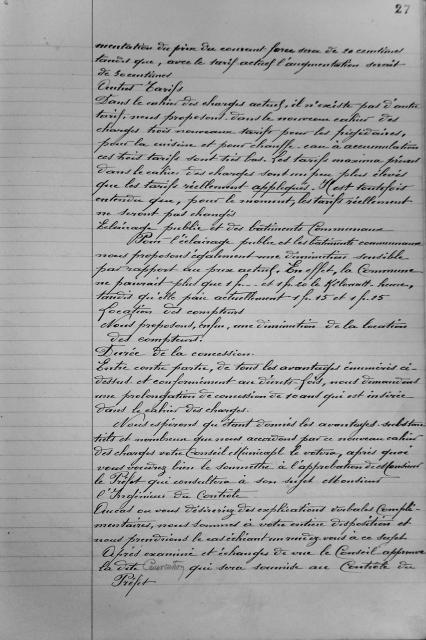 27
mentation du prix du courant force sera de 20 centimes
tandis que, avec le tarif actuel l'augmentation serait
de 50 centimes
Autres Tarifs
Dans le cahier des charges actuel, il n'existe pas d'autre
tarif. nous proposons dans le nouveau cahier des
charges trois nouveaux tarifs pour les frigidaires,
pour la cuisine et pour chauffe-eau à accumulation
ces trois tarifs sont très bas. Les tarifs maxima prévus
dans le cahier des charges sont un peu plus élevés
que les tarifs réellement appliqués. Il est toutefois
entendu que, pour le moment, les tarifs réellement
ne seront pas changés
Eclairage public et des bâtiments Communaux
Pour l'éclairage public et les bâtiments communaux
nous proposons également une diminution sensible
par rapport au prix actuel. En effet, la Commune
ne paierait plus que 1 fr. et 1 fr. 10 le Kilowatt-heure,
tandis qu'elle paie actuellement 1 fr. 15 et 1 fr. 25
Location des compteurs
Nous proposons, enfin, une diminution de la location
des compteurs.
Durée de la concession.
Entre contre partie, de tous les avantages énumérés ci-
dessus et conformément au décret-lois, nous demandons
une prolongation de concession de 10 ans qui est insérée
dans le cahier des charges.
Nous espérons qu'étant donnés les avantages substan
tiels et nombreux que nous accordons par ce nouveau cahier
des charges votre Conseil Municipal le votera, après quoi
vous voudrez bien le soumettre à l'approbation de Monsieur
le Préfet qui consultera à son sujet Monsieur
l'Ingénieur du Contrôle
Aucas ou vous désireriez des explications verbales Complé-
mentaires, nous sommes à votre entière disposition et
nous prendrions le cas échéant un rendez vous à ce sujet
Après examiné et échanges de vue le Conseil approuve
la dite Convention qui sera soumise au Contrôle du
Préfet